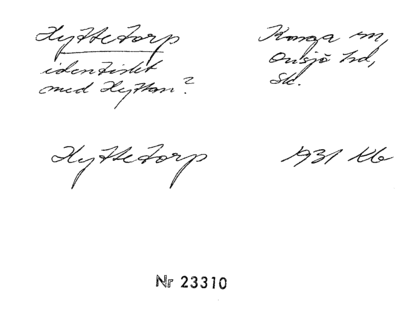 Hyttetorp
Konga sn,
identiskt
Onsjö hd,
med Hyttan?
Sk.
Hyttetorp
1931 Kb
Nr 23310